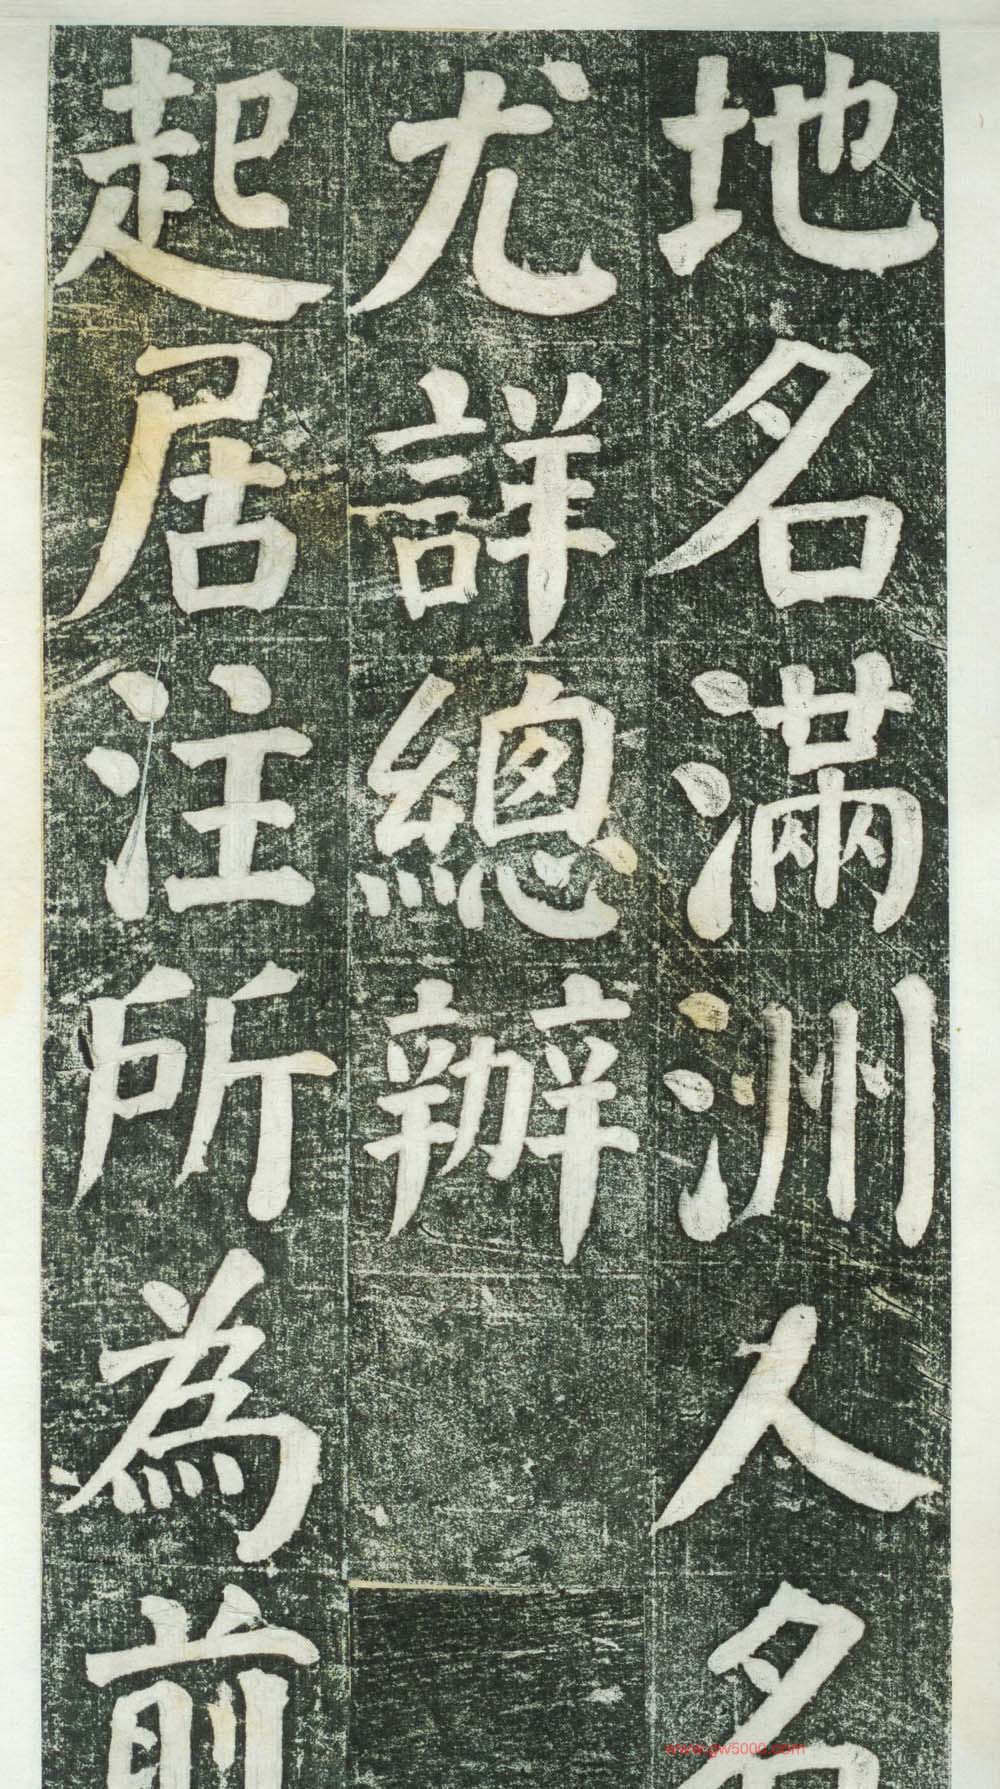 地名滿洲人名
尤詳總辦
起居注所為前
www.gw5000.com